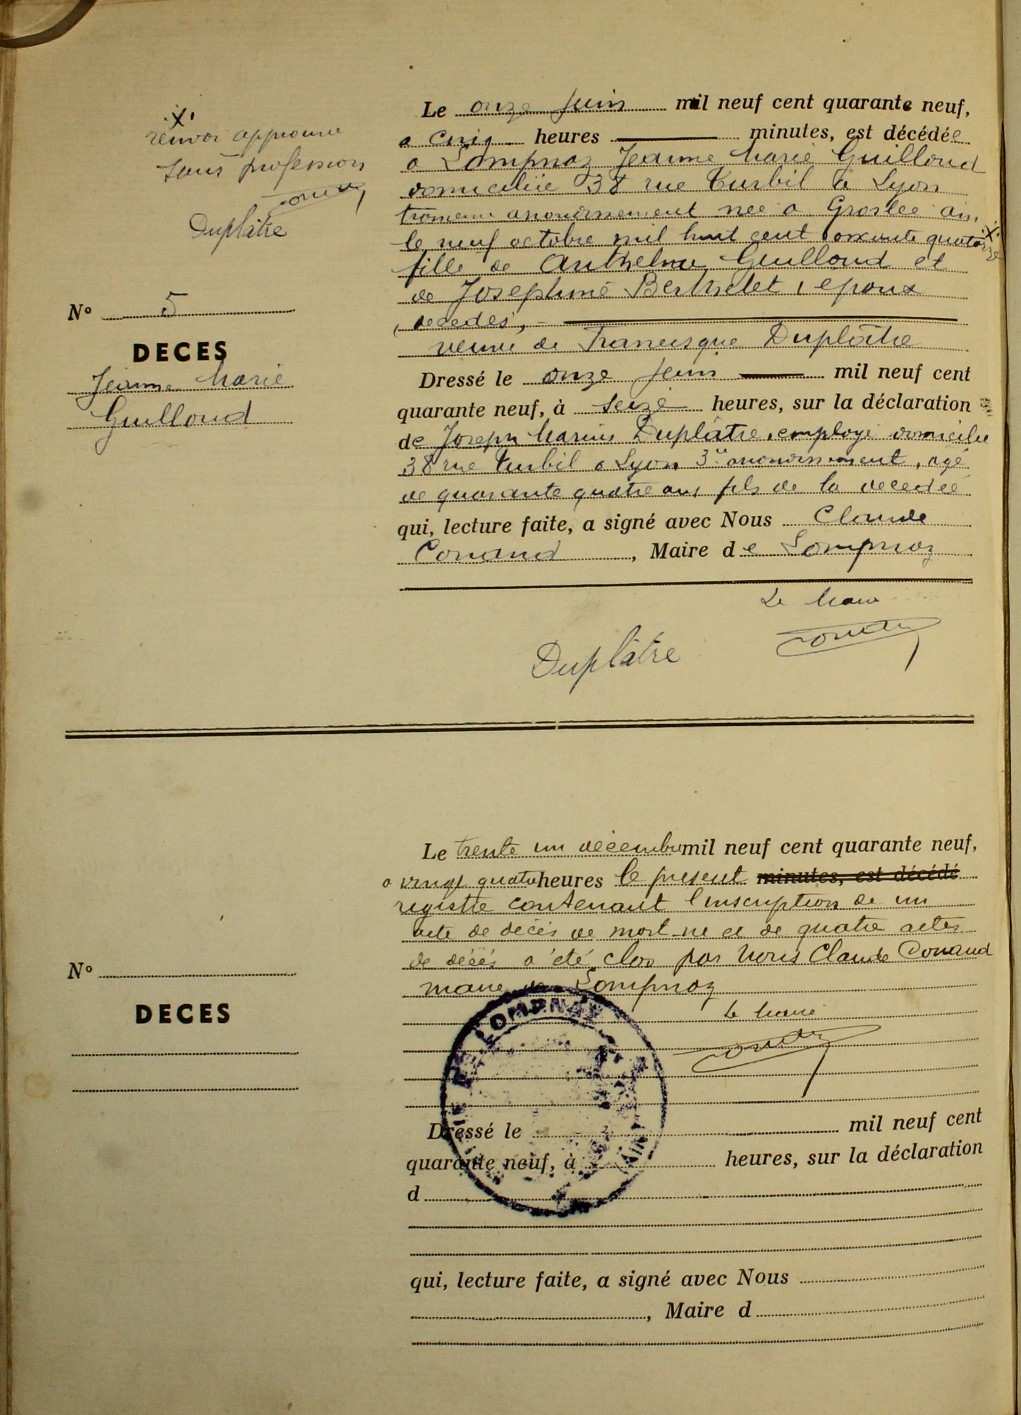 X
renvoi approuvé
sans profession
Conand
Duplâtre
N° 5
DECES
Jeanne Marie
Guilloud
Le onze juin mil neuf cent quarante neuf,
a cinq heures minutes, est décédée
a Lompnaz Jeanne Marie Guilloud
domiciliée 38 rue Turbil à Lyon
troisième arrondissement née a Groslée ain, X
le neuf octobre mil huit cent soixante quatorze
fille de Anthelme Guilloud et
de Josephine Berthelet, epoux
décédés,
veuve de Francisque Duplâtre
Dressé le onze juin mil neuf cent
quarante neuf, à seize heures, sur la déclaration
de Joseph Marius Duplâtre, employé domicilié
38 rue Turbil a Lyon 3e arrondissement, agé
de quarante quatre ans, fils de la décédée
qui, lecture faite, a signé avec Nous Claude
Conand, Maire de Lompnaz
Le Maire
Duplâtre Conand
Le trente un décembre mil neuf cent quarante neuf,
a vingt quatre heures le present minutes, est décédé
registre contenant l'inscription de un
acte de décés de mort-né et de quatre actes
de décés a été clos par Nous Claude Conand
maire de Lompnaz
Le Maire
Conand
N°
DECES
MAIRIE DE LOMPNAZ (AIN)
Dressé le mil neuf cent
quarante neuf, à heures, sur la déclaration
d
qui, lecture faite, a signé avec Nous
, Maire d